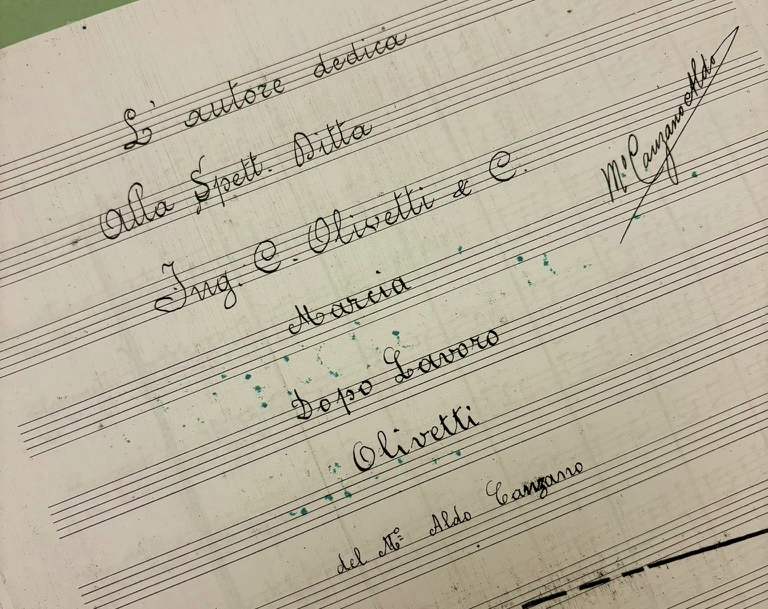 L'autore dedica
Alla Spett. Ditta
Ing. C. Olivetti & C.
Mº Canzano Aldo
Marcia
Dopo Lavoro
Olivetti
del Mº Aldo Canzano